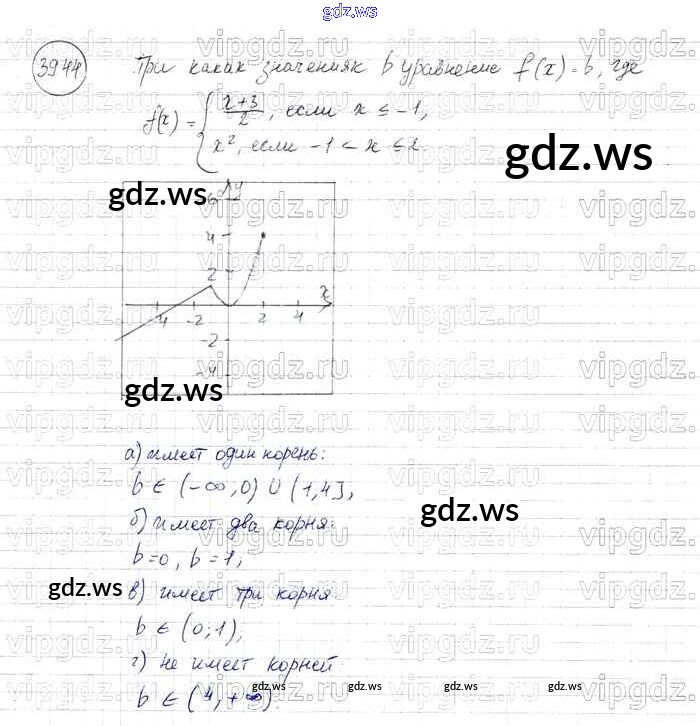 gdz.ws
3944
При каках значениях b уравнение f(x)=b, где
f(x) = { x+3/2, если x ≤ -1,
x², если -1 < x ≤ 2.
gdz.ws
gdz.ws
y
6
4
2
x
-4 -2 2 4
-2
-4
gdz.ws
а) имеет один корень:
b ∈ (-∞, 0) ∪ (1, 4],
gdz.ws
б) имеет два корня:
b=0, b=1;
gdz.ws
в) имеет три корня:
b ∈ (0; 1),
г) не имеет корней:
b ∈ (4, +∞)
gdz.ws gdz.ws gdz.ws gdz.ws